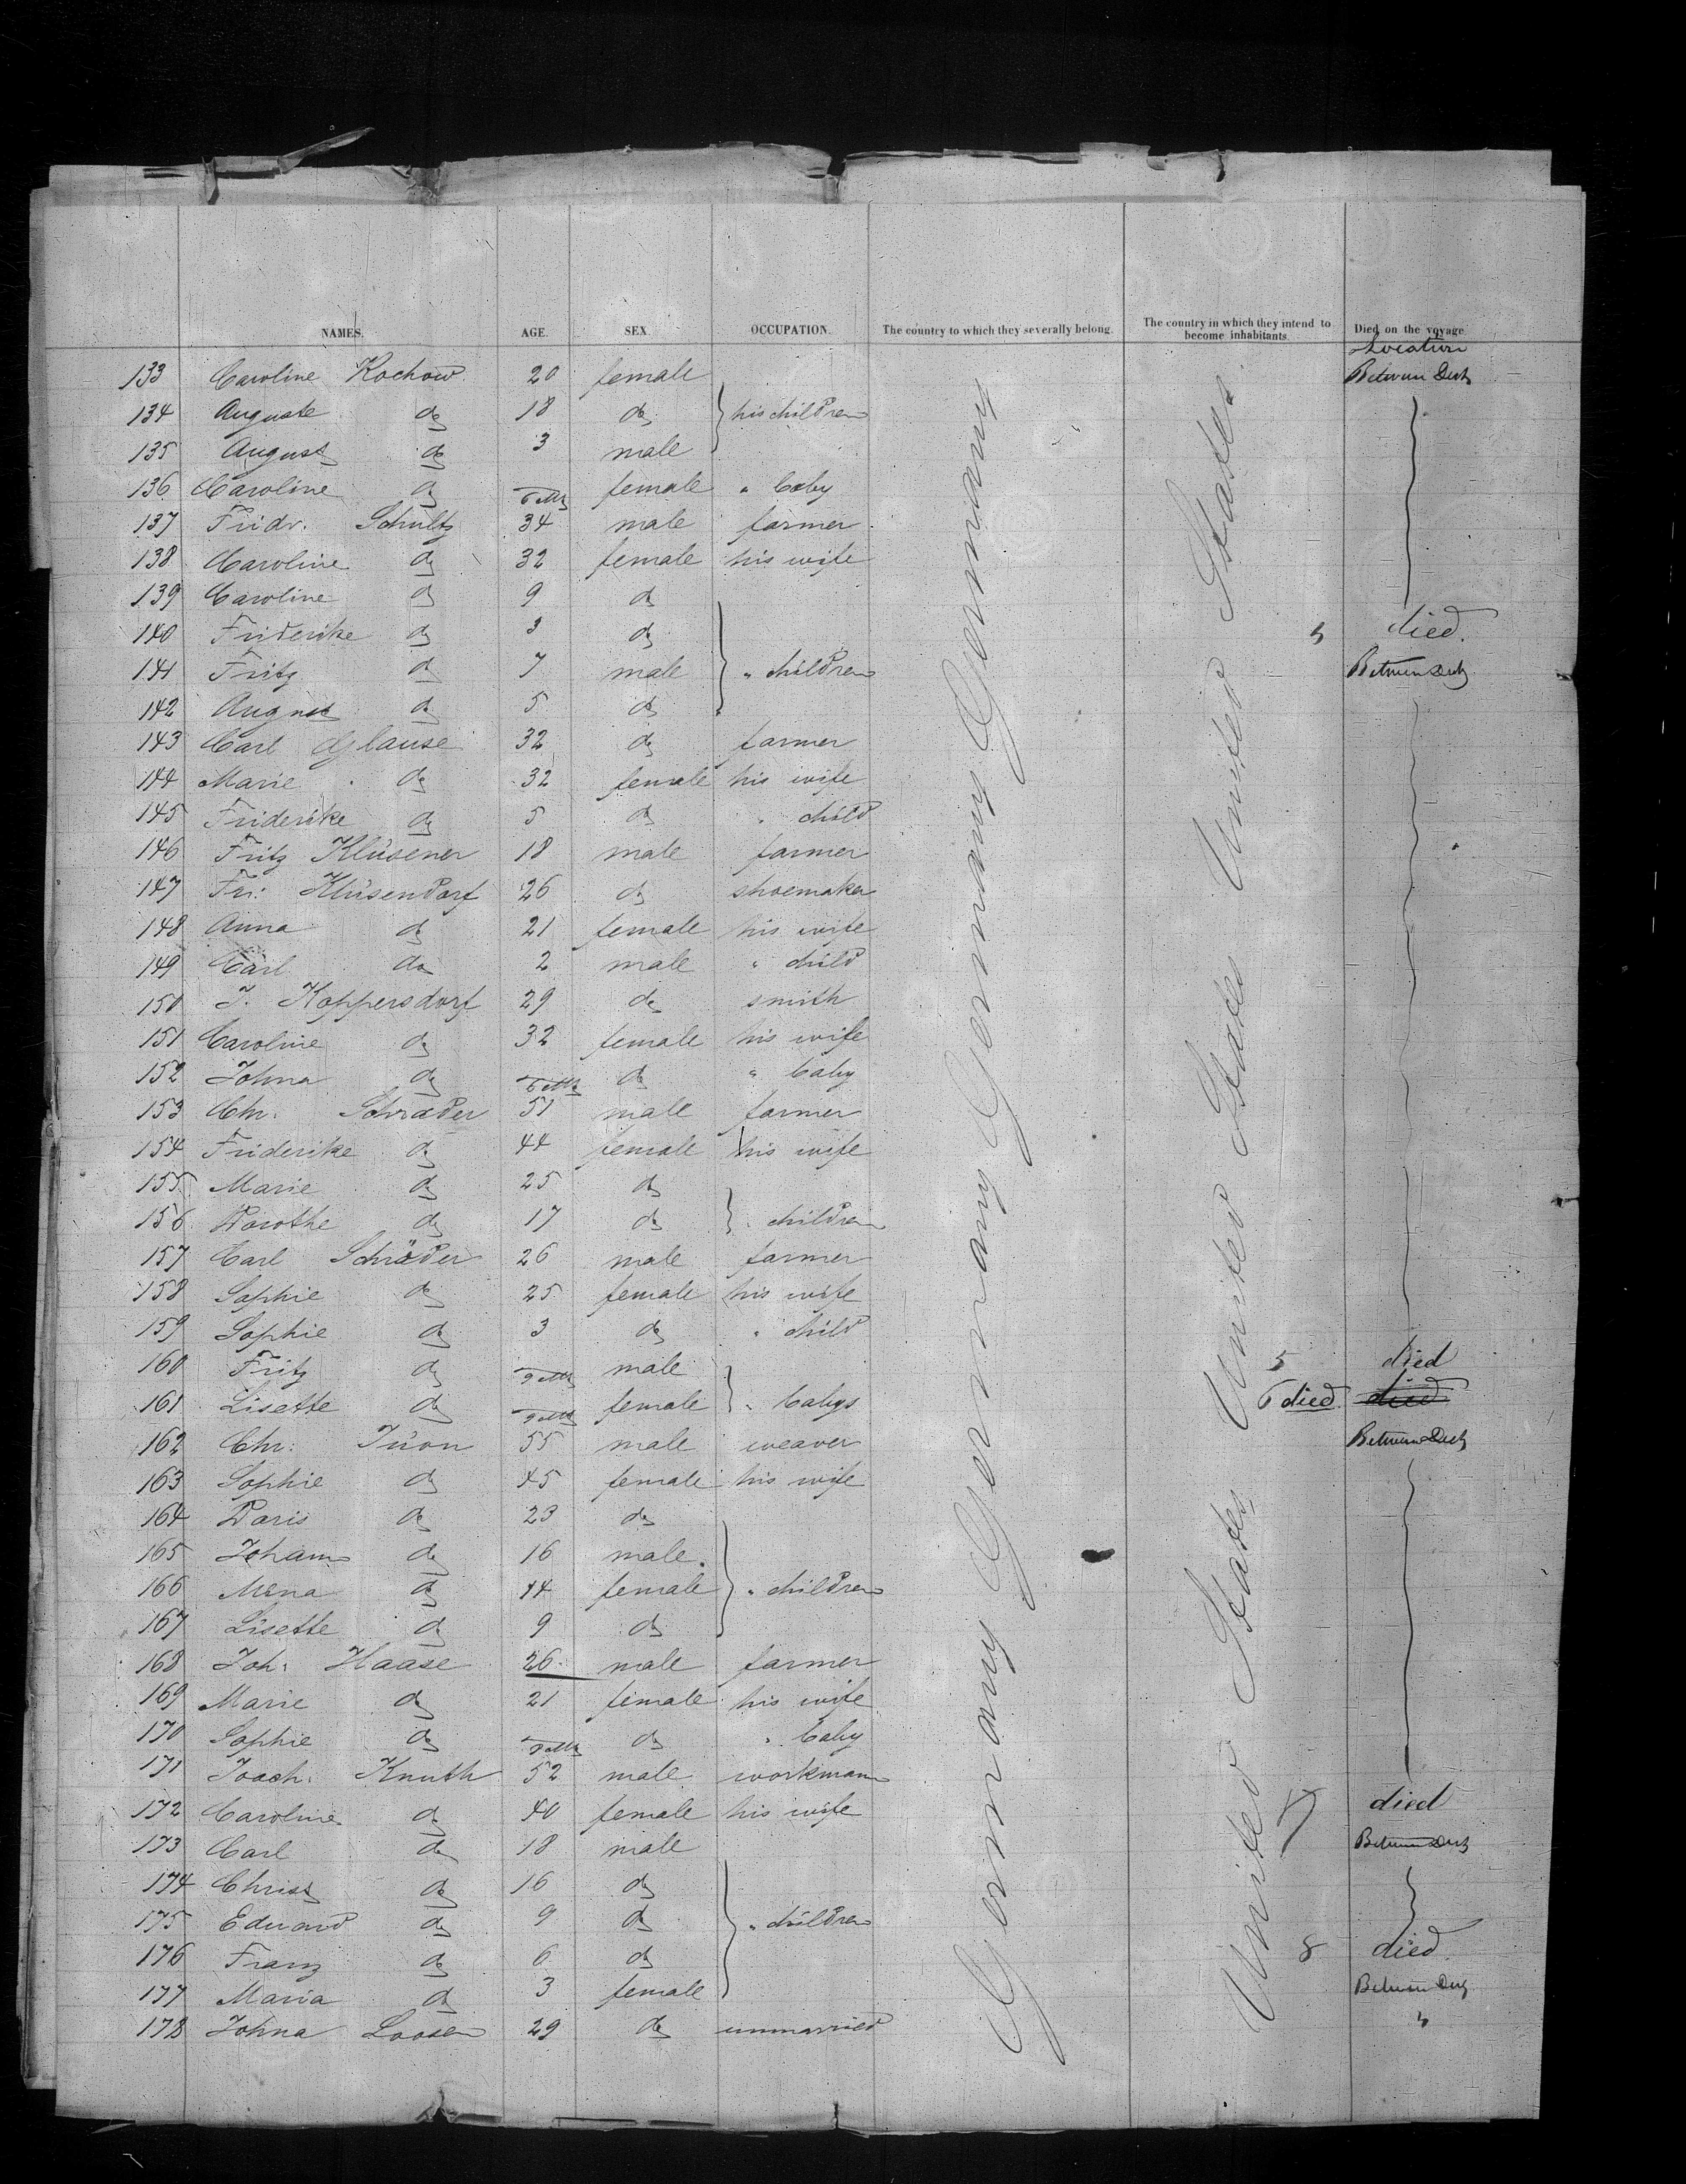 NAMES. AGE. SEX. OCCUPATION. The country to which they severally belong. The country in which they intend to become inhabitants Died on the voyage.
Location
133 Caroline Kochow 20 female Between Deck
134 Auguste do 18 do his children
135 August do 3 male
136 Caroline do 6 Mts female " baby
137 Fridr. Schultz 34 male farmer
138 Caroline do 32 female his wife
139 Caroline do 9 do
140 Friderike do 3 do died.
141 Fritz do 7 male " children Between Deck
142 August do 5 do
143 Carl Glause 32 do farmer
144 Marie do 32 female his wife
145 Friderike do 5 do " child
146 Fritz Klüsener 18 male farmer
147 Fr: Klüsendorf 26 do shoemaker
148 Anna do 21 female his wife
149 Carl do 2 male " child
150 J. Koppersdorf 29 do smith
151 Caroline do 32 female his wife
152 Johna do 6 Mts do " baby
153 Chr. Schrader 51 male farmer
154 Friderike do 44 female his wife
155 Marie do 25 do
156 Dorothe do 17 do " children
157 Carl Schräder 26 male farmer
158 Sophie do 25 female his wife
159 Sophie do 3 do " child
160 Fritz do 9 Mts male 5 died
161 Lisette do 9 Mts female " babys 6 died. died
162 Chr: Türon 55 male weaver Between Deck
163 Sophie do 45 female his wife
164 Doris do 23 do
165 Johann do 16 male.
166 Mena do 14 female " children
167 Lisette do 9 do
168 Joh: Haase 26 male farmer
169 Marie do 21 female his wife
170 Sophie do 9 Mts do " baby
171 Joach: Knuth 52 male workmann
172 Caroline do 40 female his wife 7 died
173 Carl do 18 male Between Deck
174 Christ do 16 do
175 Eduard do 9 do " children
176 Franz do 6 do 8 died.
177 Maria do 3 female Between Deck
178 Johna Loosen 29 do unmarried "
Germany Germany Germany Germany
United States United States United States